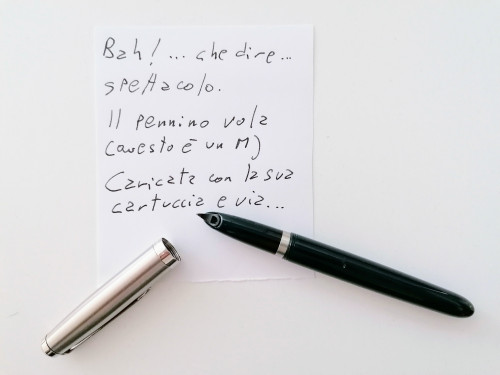 Bah! ... che dire...
spettacolo.
Il pennino vola
(questo è un M)
Caricata con la sua
cartuccia e via...